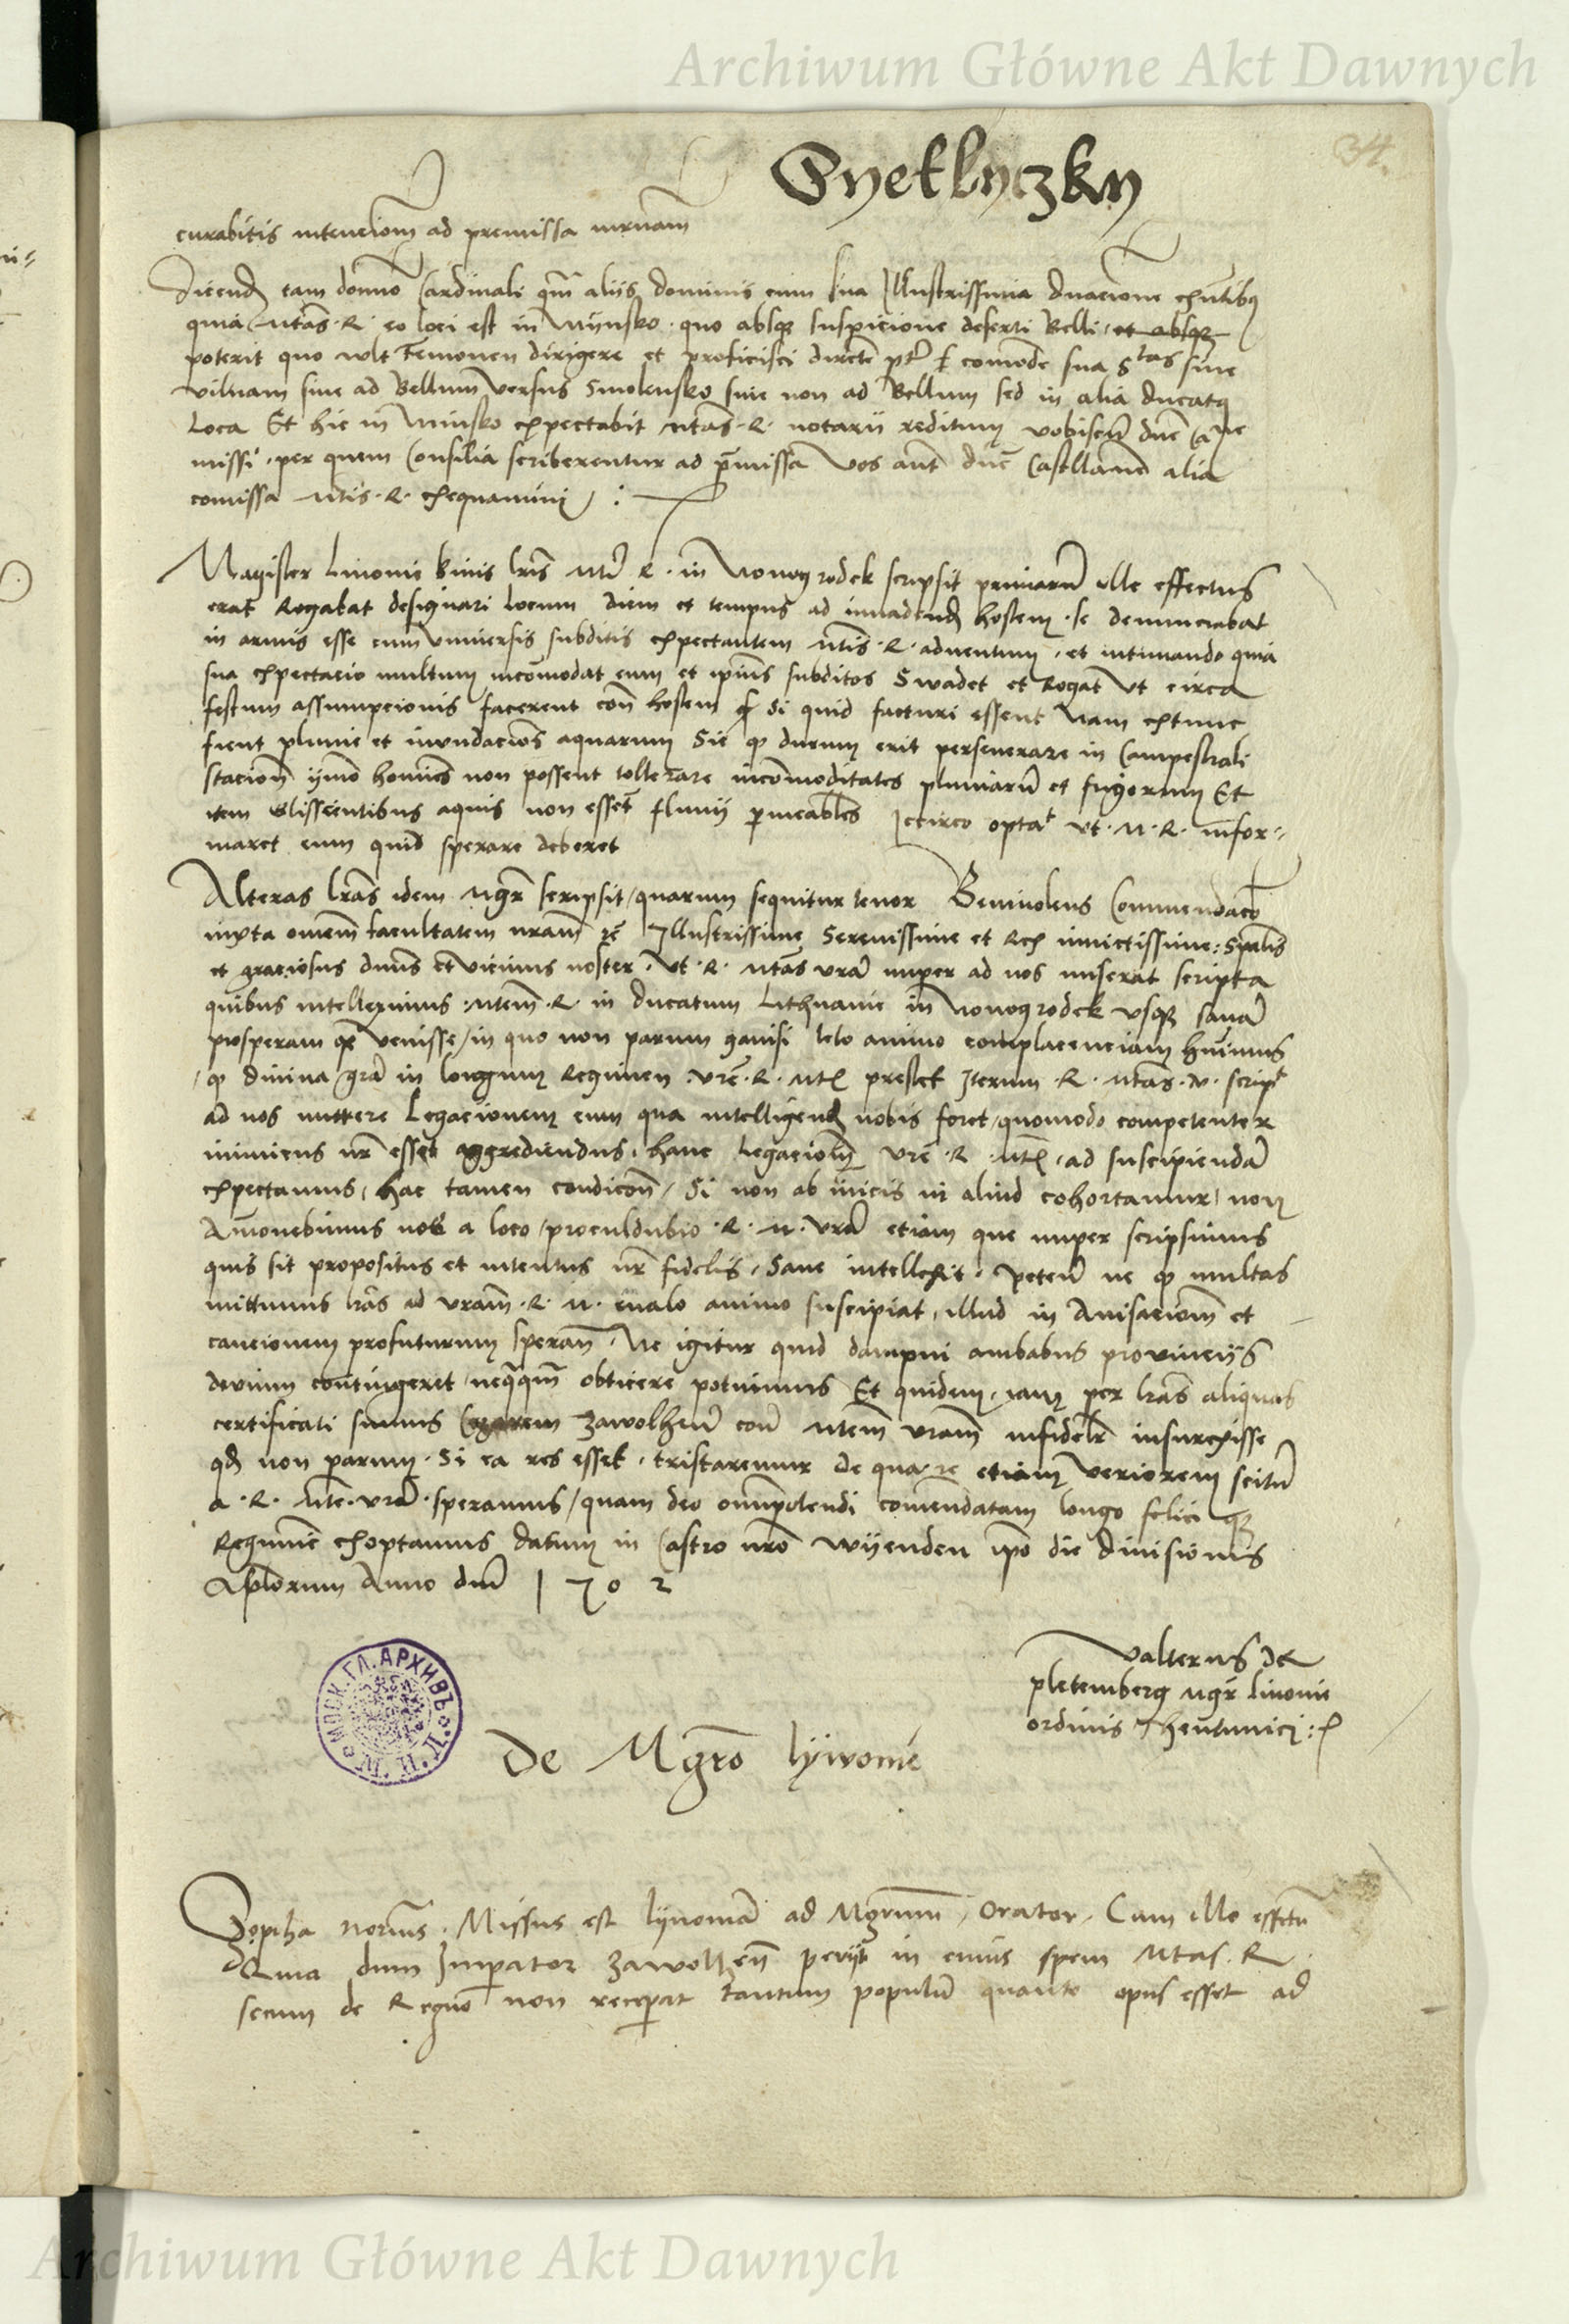 Archiwum Główne Akt Dawnych
34.
Pyetlyczky
curabitis intencionem ad premissa
Dicend tam domino Cardinali qm aliis dominis cum sua Illustrissima
quia Mtas R. eo loci est in Mynsko quo absque suspicione deserti Belli et absque
poterit quo vult Temonen dirigere et proficisci directe comode sua Stas sive
vilnam sive ad Bellum versus Smolensko sive non ad Bellum sed in alia ducatus
Loca Et hic in Minsko expectabit Mtas R. notarii reditum vobiscum
missi per quem Consilia scriberentur ad premissa Vos aut dne Castellane alia
comissa Mtis R. exequamini
Magister Livonie binis lris Mti R. in Novogrodek scripsit primarum ille effectus
erat Rogabat designari locum diem et tempus ad invadend hostem se denunciabat
in armis esse cum universis subditis expectantem Mtis R. adventum et intimando quia
sua expectacio multum incomodat eum et ipsius subditos Swadet et Rogat Vt circa
festum assumpcionis facerent con hostem si quid facturi essent Nam extunc
fient pluvie et inundacios aquarum Sic q durum erit perseverare in Campestrali
stacion ymo homines non possent tollerare incommoditates pluviarum et frigorum Et
item Glissentibus aquis non esset fluvii permeabiles Iccirco optat vt M. R. infor-
maret eum quid sperare deberet
Alteras lras idem Mgr scripsit quarum sequitur tenor Benivolens Commendaco
iuxta omnem facultatem nram Illustrissime Serenissime et Rex invictissime Spalis
et graciosus dnus et vicinus noster Vt R. Mtas vra nuper ad nos miserat scripta
quibus intelleximus Mtem R. in ducatum Lithuanie in Novogrodek usque sanam
prosperam que venisse in quo non parum gavisi leto animo complacenciam huimus
q divina gra in longum Regimen vre R. Mti prestet Iterum R. Mtas v. script
ad nos mittere Legacionem cum qua intelligend nobis foret quomodo competenter
inimicus nr esset aggrediendus hanc legacionem vre R. Mti ad suscipiendam
expectamus hac tamen condicion Si non ab inicis in aliud cohortamur non
Amonebimus nos a loco proculdubio R. M. vra etiam que nuper scripsimus
quis sit propositus et intentus nr fidelis Sane intellexit peten ne q multas
mittimus lras ad vram R. M. malo animo suscipiat illud in Avisacionem et
caucionem profuturum speram Ne igitur quid dampni ambabus provinciis
devium contingeret neqqm obticere potuimus Et quidem iam per lras aliquas
certificati sumus Czarem Zawolhen con Mtem vram infidelr insurexisse
qd non parum Si ea res esset tristaremur de qua re etiam veriorem scitum
a R. Mte vra speramus quam deo omnipotendi comendatam longo felici que
Regimine exoptamus Datum in Castro nro Wyenden ipo die divisionis
Aplorum Anno dni 1 7 0 2
Valterus de
pletemberg Mgr livonie
ordinis Theutunici
МОСК. ГЛ. АРХИВЪ
De Mgro lyivonie
Sopiha Missus est lyvoniam ad Mgrum Orator Cum illo effectu
Quia dum Imperator Zawolhen periit in cuius spem Mtas R
secum de Regno non receperat tantum populum quanto opus esset ad
Archiwum Główne Akt Dawnych